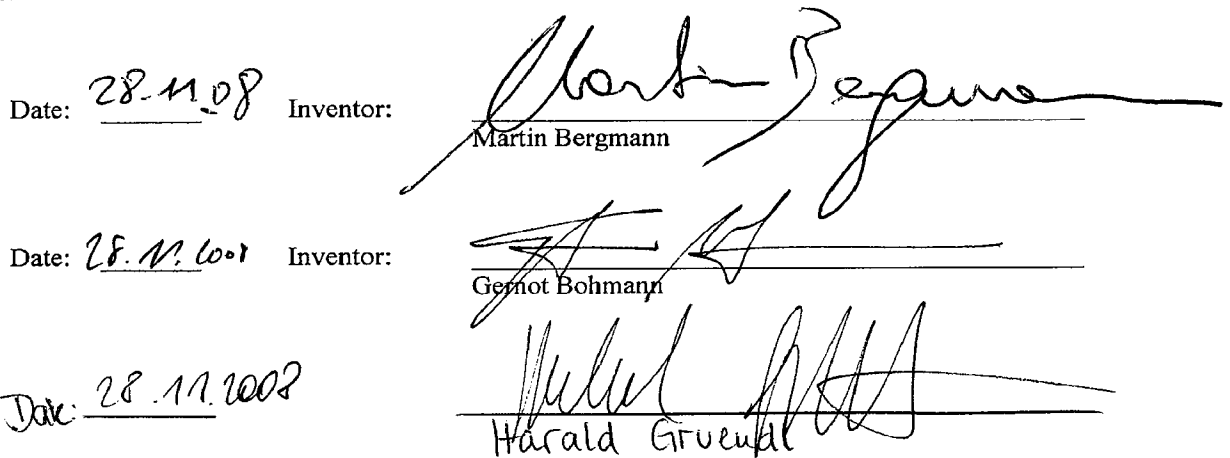 Date: 28.11.08 Inventor: Martin Bergmann
Martin Bergmann
Date: 28.11.2008 Inventor:
Gernot Bohmann
Date: 28.11.2008
Harald Gruendl